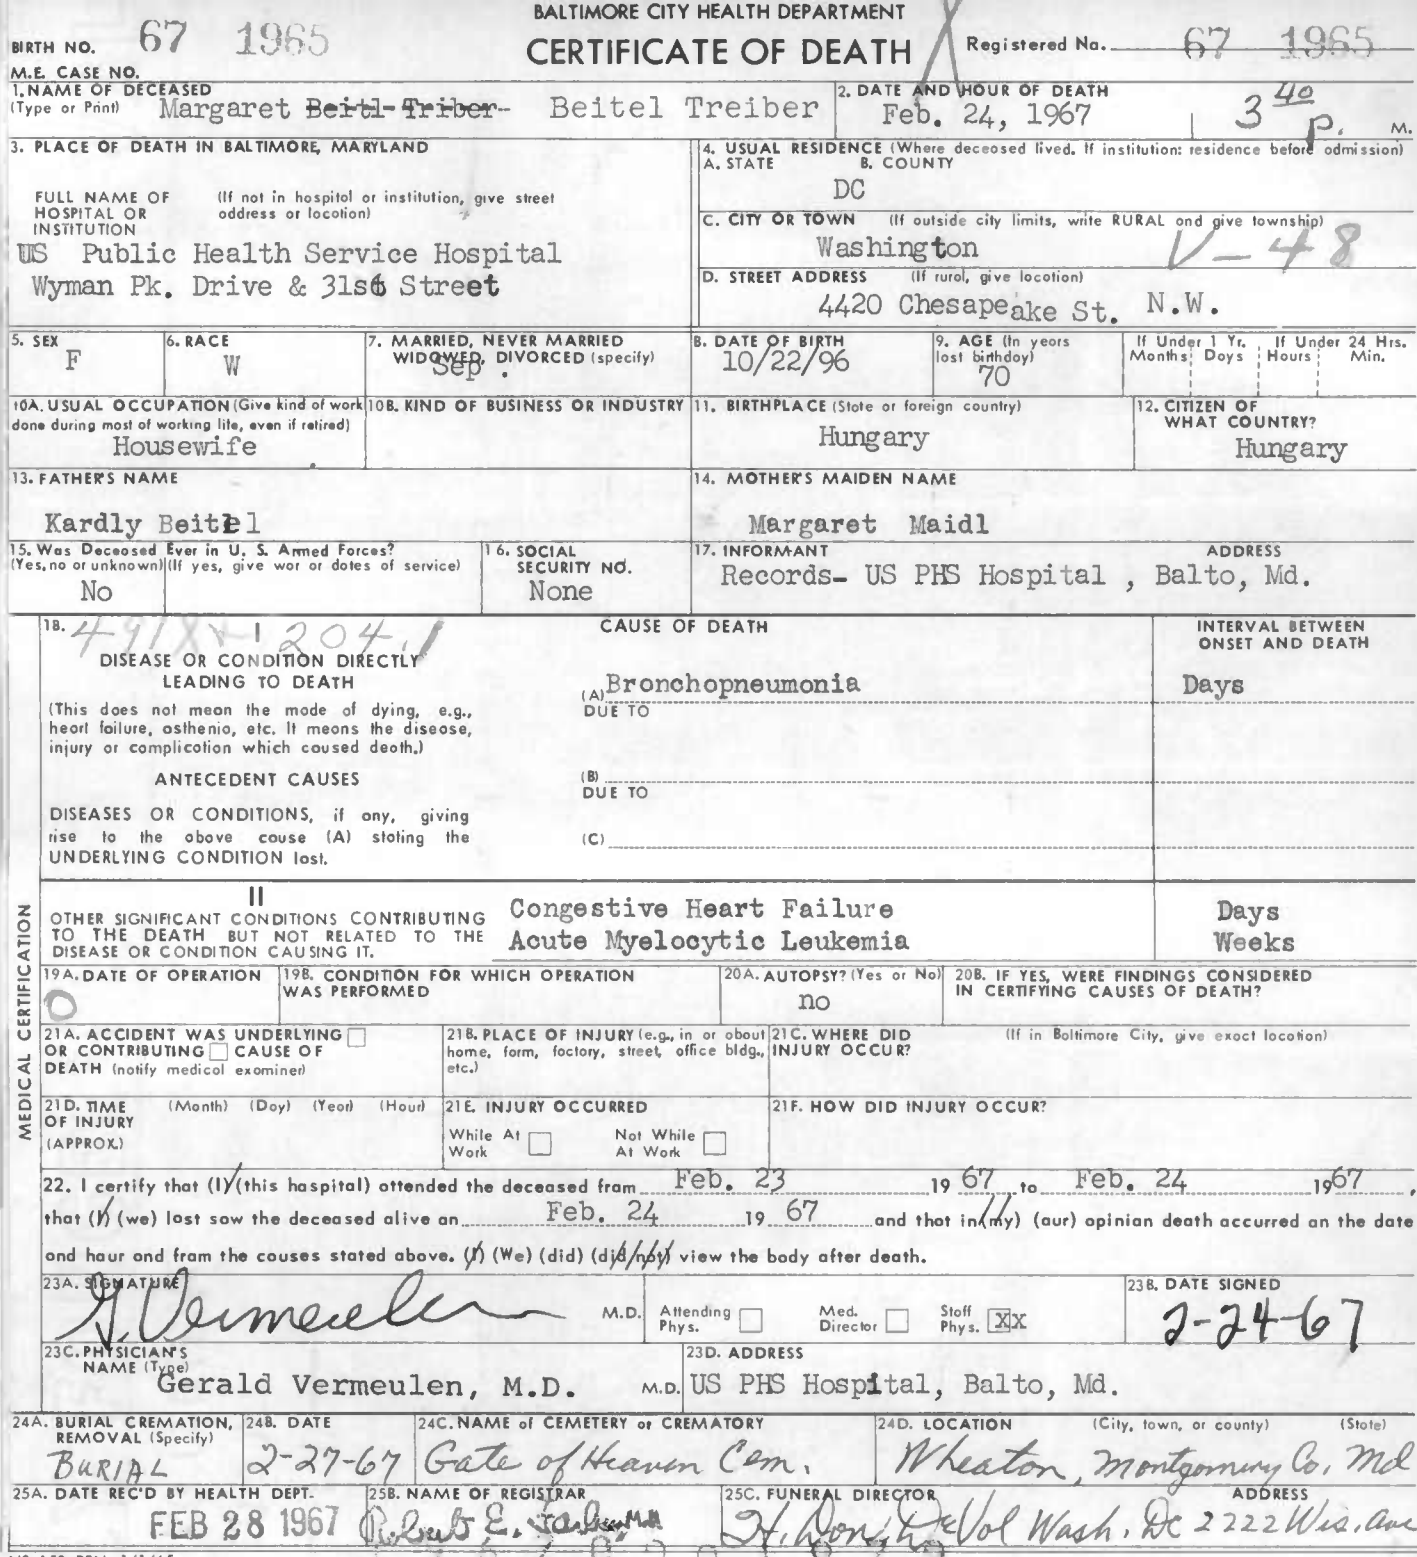 BALTIMORE CITY HEALTH DEPARTMENT
CERTIFICATE OF DEATH
BIRTH NO. 67 1965
Registered No. 67 1965
M.E. CASE NO.
1. NAME OF DECEASED
(Type or Print) Margaret Beitl-Triber- Beitel Treiber
2. DATE AND HOUR OF DEATH
Feb. 24, 1967 3 40 P. M.
3. PLACE OF DEATH IN BALTIMORE, MARYLAND
FULL NAME OF HOSPITAL OR INSTITUTION
(If not in hospital or institution, give street address or location)
US Public Health Service Hospital
Wyman Pk. Drive & 31st Street
4. USUAL RESIDENCE (Where deceased lived. If institution: residence before admission)
A. STATE B. COUNTY
DC
C. CITY OR TOWN (If outside city limits, write RURAL and give township)
Washington V-48
D. STREET ADDRESS (If rural, give location)
4420 Chesapeake St. N.W.
5. SEX
F
6. RACE
W
7. MARRIED, NEVER MARRIED
WIDOWED, DIVORCED (specify)
Sep.
8. DATE OF BIRTH
10/22/96
9. AGE (In years
last birthday)
70
If Under 1 Yr. If Under 24 Hrs.
Months Days Hours Min.
10A. USUAL OCCUPATION (Give kind of work
done during most of working life, even if retired)
Housewife
10B. KIND OF BUSINESS OR INDUSTRY
11. BIRTHPLACE (State or foreign country)
Hungary
12. CITIZEN OF
WHAT COUNTRY?
Hungary
13. FATHER'S NAME
Kardly Beitel
14. MOTHER'S MAIDEN NAME
Margaret Maidl
15. Was Deceased Ever in U. S. Armed Forces?
(Yes, no or unknown) (If yes, give war or dates of service)
No
16. SOCIAL
SECURITY NO.
None
17. INFORMANT ADDRESS
Records- US PHS Hospital , Balto, Md.
MEDICAL CERTIFICATION
18. I 204.1
CAUSE OF DEATH
INTERVAL BETWEEN
ONSET AND DEATH
DISEASE OR CONDITION DIRECTLY
LEADING TO DEATH
(This does not mean the mode of dying, e.g.,
heart failure, asthenia, etc. It means the disease,
injury or complication which caused death.)
(A) Bronchopneumonia Days
DUE TO
ANTECEDENT CAUSES
(B)
DUE TO
DISEASES OR CONDITIONS, if any, giving
rise to the above cause (A) stating the
UNDERLYING CONDITION last.
(C)
II
OTHER SIGNIFICANT CONDITIONS CONTRIBUTING
TO THE DEATH BUT NOT RELATED TO THE
DISEASE OR CONDITION CAUSING IT.
Congestive Heart Failure Days
Acute Myelocytic Leukemia Weeks
19A. DATE OF OPERATION
0
19B. CONDITION FOR WHICH OPERATION
WAS PERFORMED
20A. AUTOPSY? (Yes or No)
no
20B. IF YES, WERE FINDINGS CONSIDERED
IN CERTIFYING CAUSES OF DEATH?
21A. ACCIDENT WAS UNDERLYING
OR CONTRIBUTING CAUSE OF
DEATH (notify medical examiner)
21B. PLACE OF INJURY (e.g., in or about
home, farm, factory, street, office bldg.,
etc.)
21C. WHERE DID (If in Baltimore City, give exact location)
INJURY OCCUR?
21D. TIME (Month) (Day) (Year) (Hour)
OF INJURY
(APPROX.)
21E. INJURY OCCURRED
While At Work Not While At Work
21F. HOW DID INJURY OCCUR?
22. I certify that (I) (this hospital) attended the deceased from Feb. 23 19 67 to Feb. 24 1967,
that (I) (we) last saw the deceased alive on Feb. 24 19 67 and that in (my) (our) opinion death occurred on the date
and hour and from the causes stated above. (I) (We) (did) (did not) view the body after death.
23A. SIGNATURE
G. Vermeulen M.D.
Attending Phys. Med. Director Staff Phys. XX
23B. DATE SIGNED
2-24-67
23C. PHYSICIAN'S
NAME (Type)
Gerald Vermeulen, M.D. M.D.
23D. ADDRESS
US PHS Hospital, Balto, Md.
24A. BURIAL CREMATION,
REMOVAL (Specify)
BURIAL
24B. DATE
2-27-67
24C. NAME of CEMETERY or CREMATORY
Gate of Heaven Cem.
24D. LOCATION (City, town, or county) (State)
Wheaton, Montgomery Co. Md
25A. DATE REC'D BY HEALTH DEPT.
FEB 28 1967
25B. NAME OF REGISTRAR
Robert E. Farber, M.D.
25C. FUNERAL DIRECTOR ADDRESS
H. Don, DeVol Wash. DC 2222 Wis. Ave